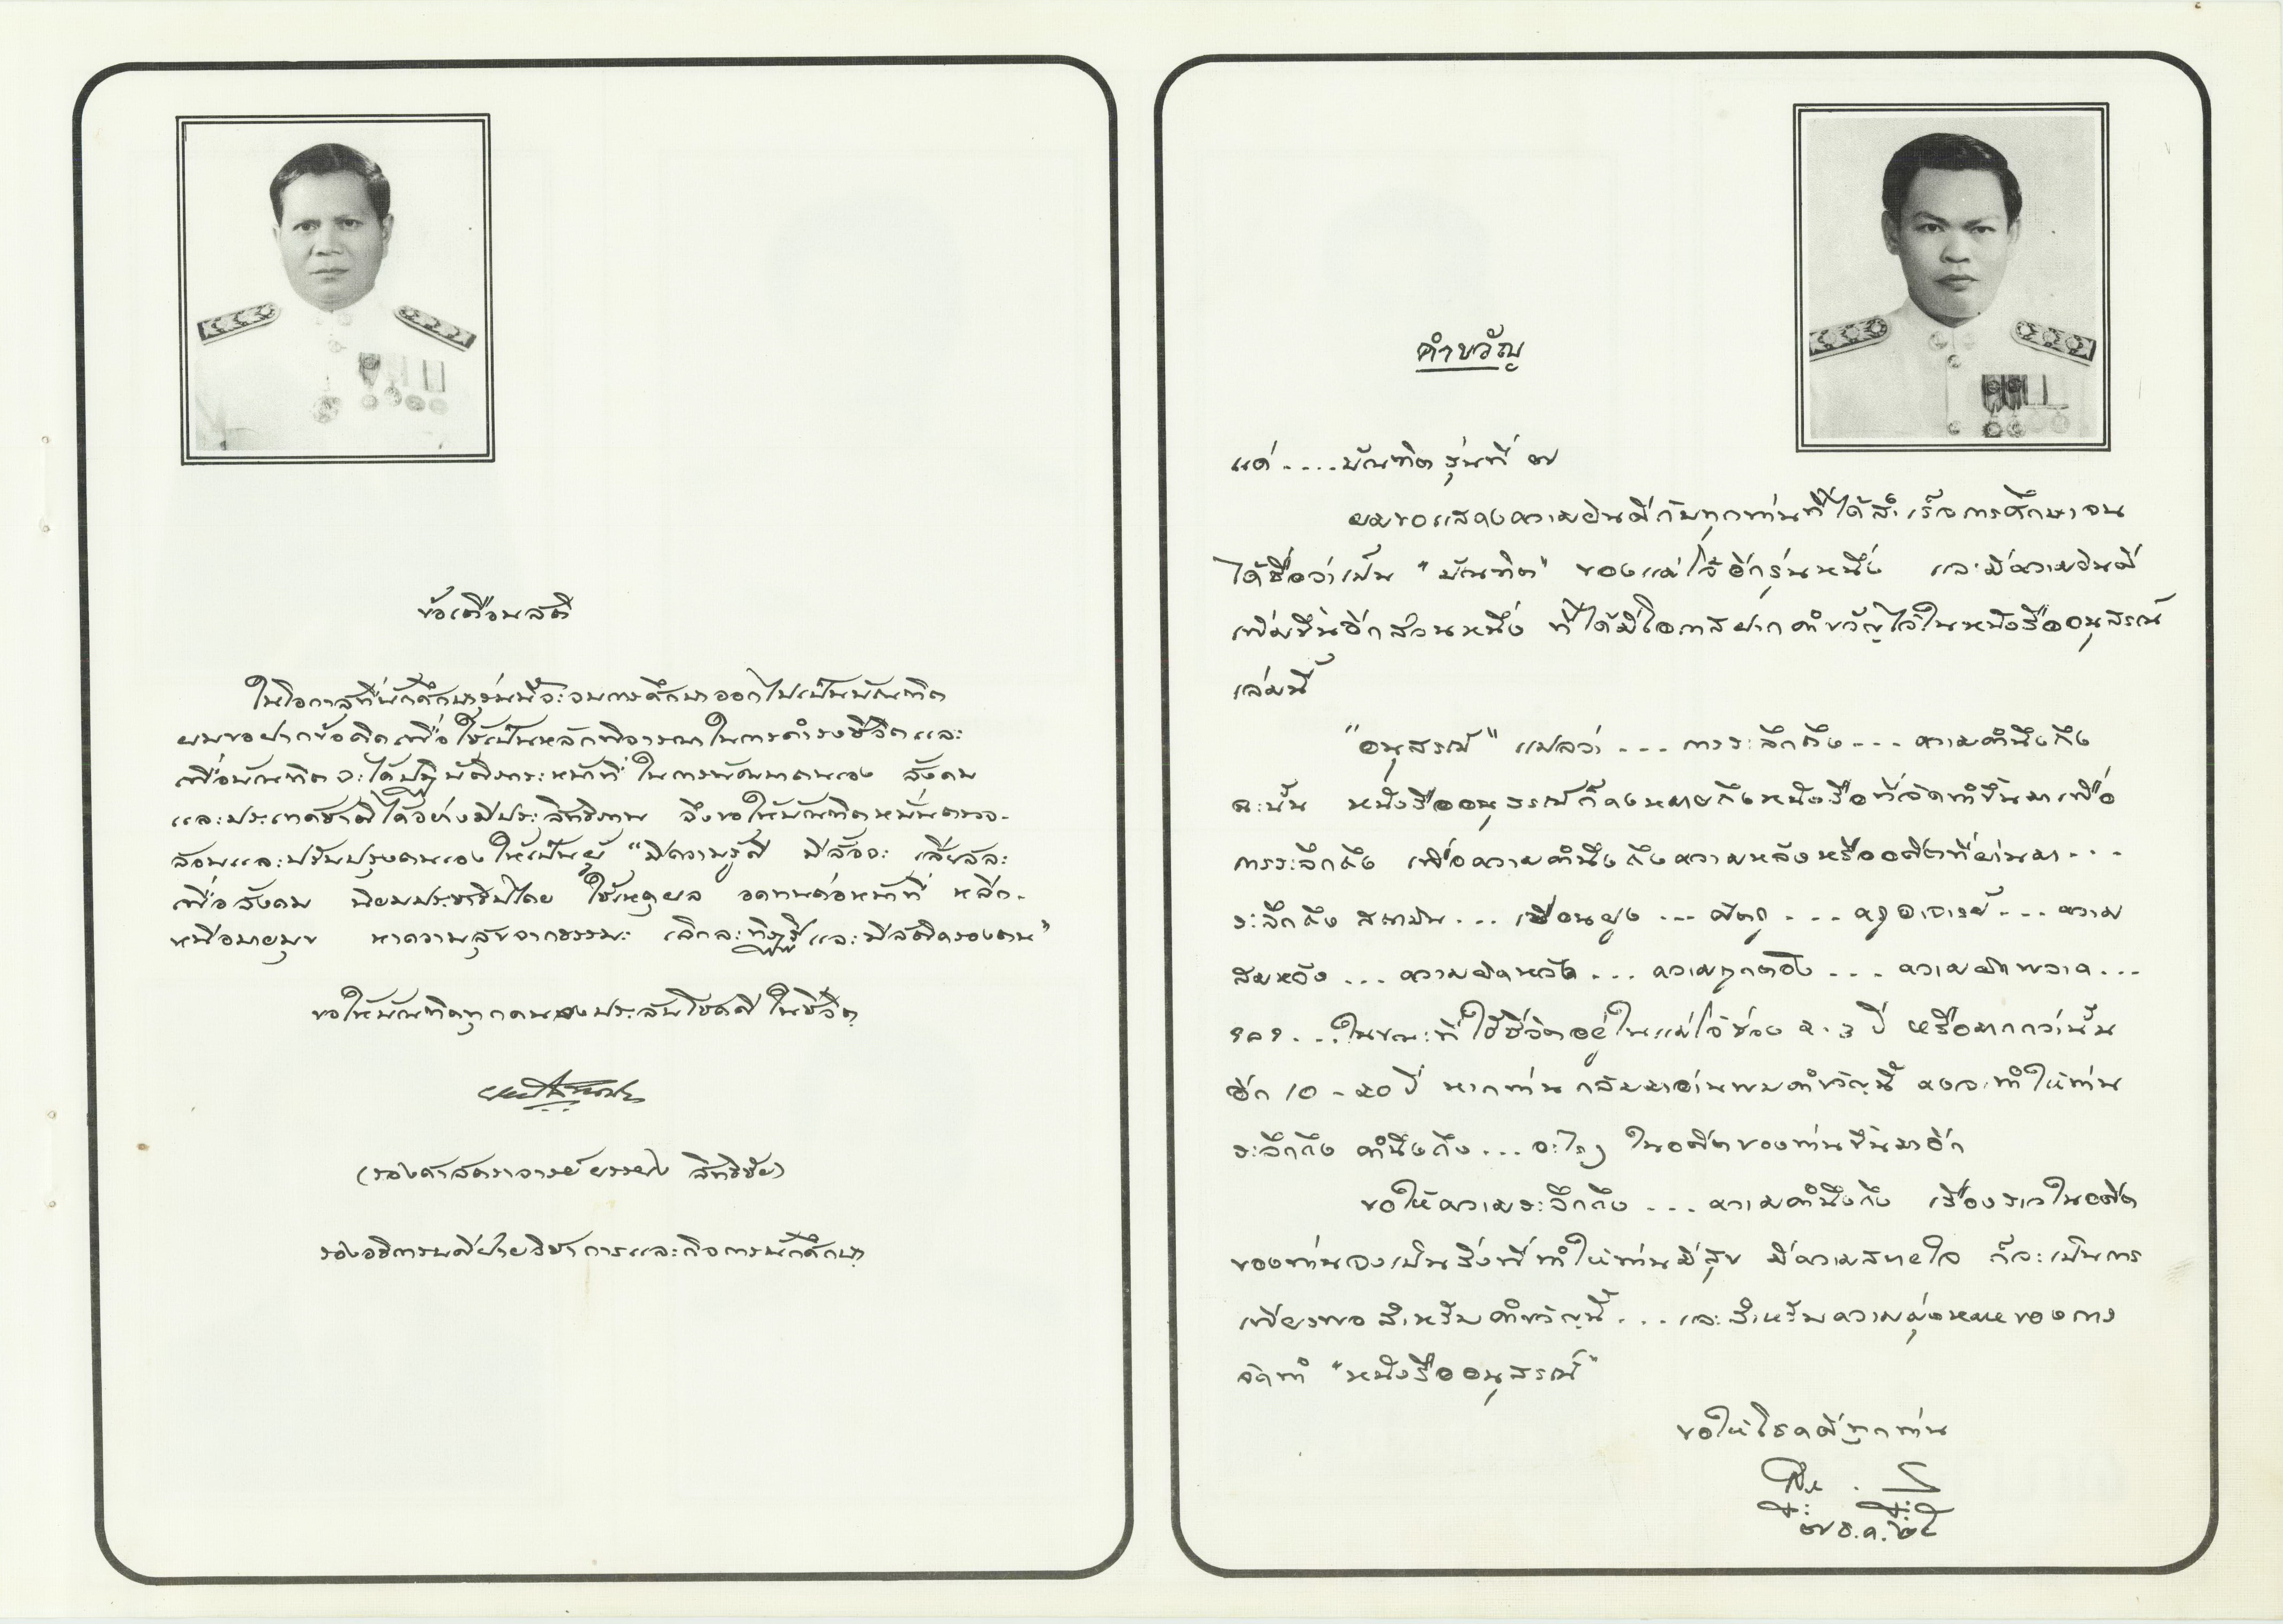 ข้อเตือนสติ
ในโอกาสที่นักศึกษารุ่นนี้จะจบการศึกษาออกไปเป็นบัณฑิต
ผมขอฝากข้อคิดเพื่อใช้เป็นหลักพิจารณาในการดำรงชีวิตและ
เพื่อบัณฑิตจะได้ปฏิบัติภาระหน้าที่ในการพัฒนาตนเอง สังคม
และประเทศชาติได้อย่างมีประสิทธิภาพ จึงขอให้บัณฑิตหมั่นตรวจ-
สอบและปรับปรุงตนเองให้เป็นผู้ "มีความรู้ดี มีสัจจะ เสียสละ
เพื่อสังคม นิยมประชาธิปไตย ใช้เหตุผล อดทนต่อหน้าที่ หลีก-
หนีอบายมุข หาความสุขจากธรรมะ เลิกละทิฏฐิและมีสติครองตน"
ขอให้บัณฑิตทุกคนจงประสบโชคดีในชีวิต
(รองศาสตราจารย์ยรรยง สิทธิชัย)
รองอธิการบดีฝ่ายวิชาการและกิจการนักศึกษา
คำขวัญ
แด่....บัณฑิตรุ่นที่ ๗
ผมขอแสดงความยินดีกับทุกท่านที่ได้สำเร็จการศึกษาจน
ได้ชื่อว่าเป็น "บัณฑิต" ของแม่โจ้อีกรุ่นหนึ่ง และมีความยินดี
เพิ่มขึ้นอีกส่วนหนึ่ง ที่ได้มีโอกาสฝากคำขวัญไว้ในหนังสืออนุสรณ์
เล่มนี้
"อนุสรณ์" แปลว่า ... การระลึกถึง ... ความคำนึงถึง
ฉะนั้น หนังสืออนุสรณ์ก็คงหมายถึงหนังสือที่จัดทำขึ้นมาเพื่อ
การระลึกถึง เพื่อความคำนึงถึงความหลังหรืออดีตที่ผ่านมา...
ระลึกถึง สถาบัน ... เพื่อนฝูง ... ศัตรู ... ครูอาจารย์ ... ความ
สมหวัง ... ความผิดหวัง ... ความถูกต้อง ... ความผิดพลาด ...
ฯลฯ ...ในขณะที่ใช้ชีวิตอยู่ในแม่โจ้ช่วง ๒-๓ ปี หรือมากกว่านั้น
อีก 10 - ๒0 ปี หากท่านกลับมาอ่านพบคำขวัญนี้ คงจะทำให้ท่าน
ระลึกถึง คำนึงถึง ... อะไรๆ ในอดีตของท่านขึ้นมาอีก
ขอให้ความระลึกถึง ... ความคำนึงถึง เรื่องราวในอดีต
ของท่านจงเป็นสิ่งที่ทำให้ท่านมีสุข มีความสบายใจ ก็จะเป็นการ
เพียงพอสำหรับคำขวัญนี้ ... และสำหรับความมุ่งหมายของการ
จัดทำ "หนังสืออนุสรณ์"
ขอให้โชคดีทุกท่าน